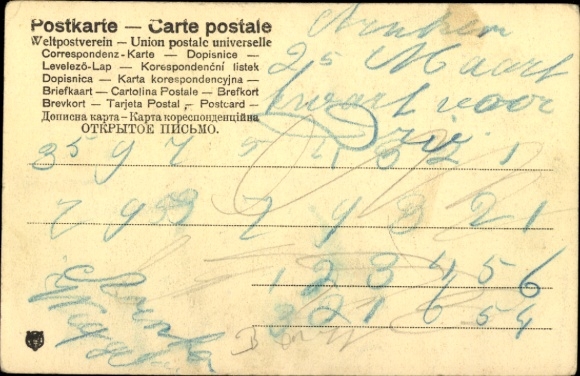 Postkarte — Carte postale
Weltpostverein — Union postale universelle
Correspondenz-Karte — Dopisnice
Levelező-Lap — Korespondenční lístek
Dopisnica — Karta korespondencyjna —
Briefkaart — Cartolina Postale — Brefkort
Brevkort — Tarjeta Postal — Postcard —
Дописна карта — Карта кореспонденційна
ОТКРЫТОЕ ПИСЬМО.
Arnhem
25 Maart
kwart voor
3 5 9 7 5 4 3 2 1
7 9 7 9 3 2 1
1 2 3 4 5 6
3 2 1 6 5 4